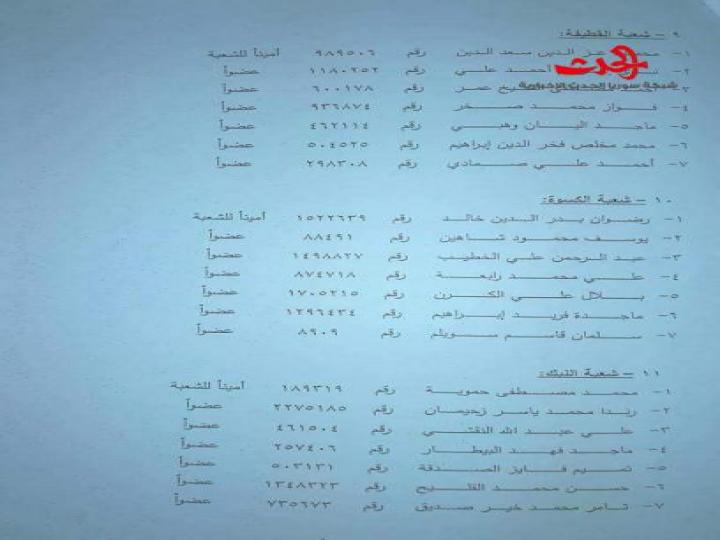 ٩ – شعبة القطيفة:
١- محمد عز الدين سعد الدين رقم ٩٨٩٥٠٦ أميناً للشعبة
٢- أحمد علي رقم ١١٨٠٢٥٢ عضواً
الحدث
٣- عمر رقم ٦٠٠١٧٨ عضواً
شبكة سوريا الحدث الإخبارية
٤- فواز محمد صخر رقم ٩٣٦٨٧٤ عضواً
٥- ماجد اليان وهبي رقم ٤٦٢١١٤ عضواً
٦- محمد مخلص فخر الدين إبراهيم رقم ٥٠٤٥٢٥ عضواً
٧- أحمد علي صمادي رقم ٢٩٨٣٠٨ عضواً
١٠ – شعبة الكسوة:
١- رضوان بدر الدين خالد رقم ١٥٢٢٦٣٩ أميناً للشعبة
٢- يوسف محمود شاهين رقم ٨٨٤٩١ عضواً
٣- عبد الرحمن علي الخطيب رقم ١٤٩٨٨٢٧ عضواً
٤- علي محمد رابعة رقم ٨٧٤٧١٨ عضواً
٥- بلال علي الكرن رقم ١٧٠٥٢١٥ عضواً
٦- ماجدة فريد إبراهيم رقم ١٢٩٦٤٣٤ عضواً
٧- سلمان قاسم سويلم رقم ٨٩٠٩ عضواً
١١ – شعبة النبك:
١- محمد مصطفى حموية رقم ١٨٩٣١٩ أميناً للشعبة
٢- ريدا محمد ياسر زحيمان رقم ٢٢٧٥١٨٥ عضواً
٣- علي عبد الله النقتي رقم ٤٦١٥٠٤ عضواً
٤- ماجد فهد البيطار رقم ٢٥٧٤٠٦ عضواً
٥- تميم فايز الصدقة رقم ٥٠٣١٣١ عضواً
٦- حسن محمد القليح رقم ١٣٤٨٣٢٣ عضواً
٧- ثامر محمد خير صديق رقم ٧٣٥٦٧٣ عضواً